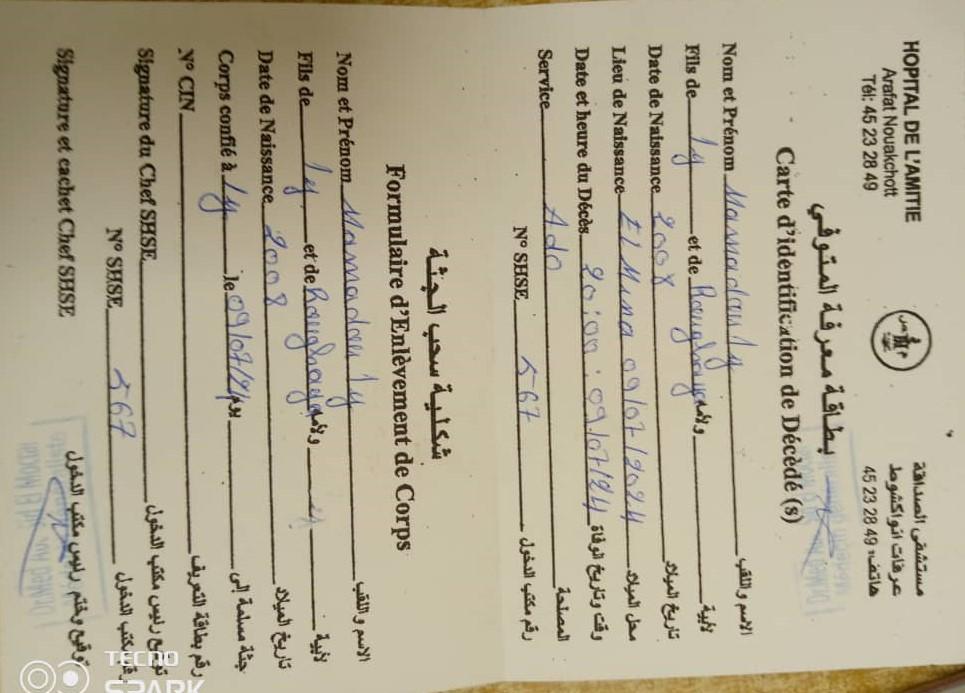 HOPITAL DE L'AMITIE
Arafat Nouakchott
Tél: 45 23 28 49
مستشفى الصداقة
عرفات انواكشوط
هاتف: 45 23 28 49
بطاقة معرفة المتوفي
Carte d'identification de Décèdé (s)
Nom et Prénom Mamadou ly الاسم واللقب
Fils de ly et de ولأمه لأبية
Date de Naissance 2008 تاريخ الميلاد
Lieu de Naissance El Mina 09/07/2024 محل الميلاد
Date et heure du Décès 20:00: 09/07/24 وقت وتاريخ الوفاة
Service Ado المصلحة
N° SHSE 567 رقم مكتب الدخول
شكلية سحب الجثة
Formulaire d'Enlèvement de Corps
Nom et Prénom Mamadou ly الاسم واللقب
Fils de ly et de ولأمه ly لأبية
Date de Naissance 2008 تاريخ الميلاد
Corps confié à ly le 09/07/24 يوم جثة مسلمة إلى
N° CIN رقم بطاقة التعريف
Signature du Chef SHSE توقيع رئيس مكتب الدخول
N° SHSE 567 رقم مكتب الدخول
Signature et cachet Chef SHSE توقيع وختم رئيس مكتب الدخول
TECNO
SPARK